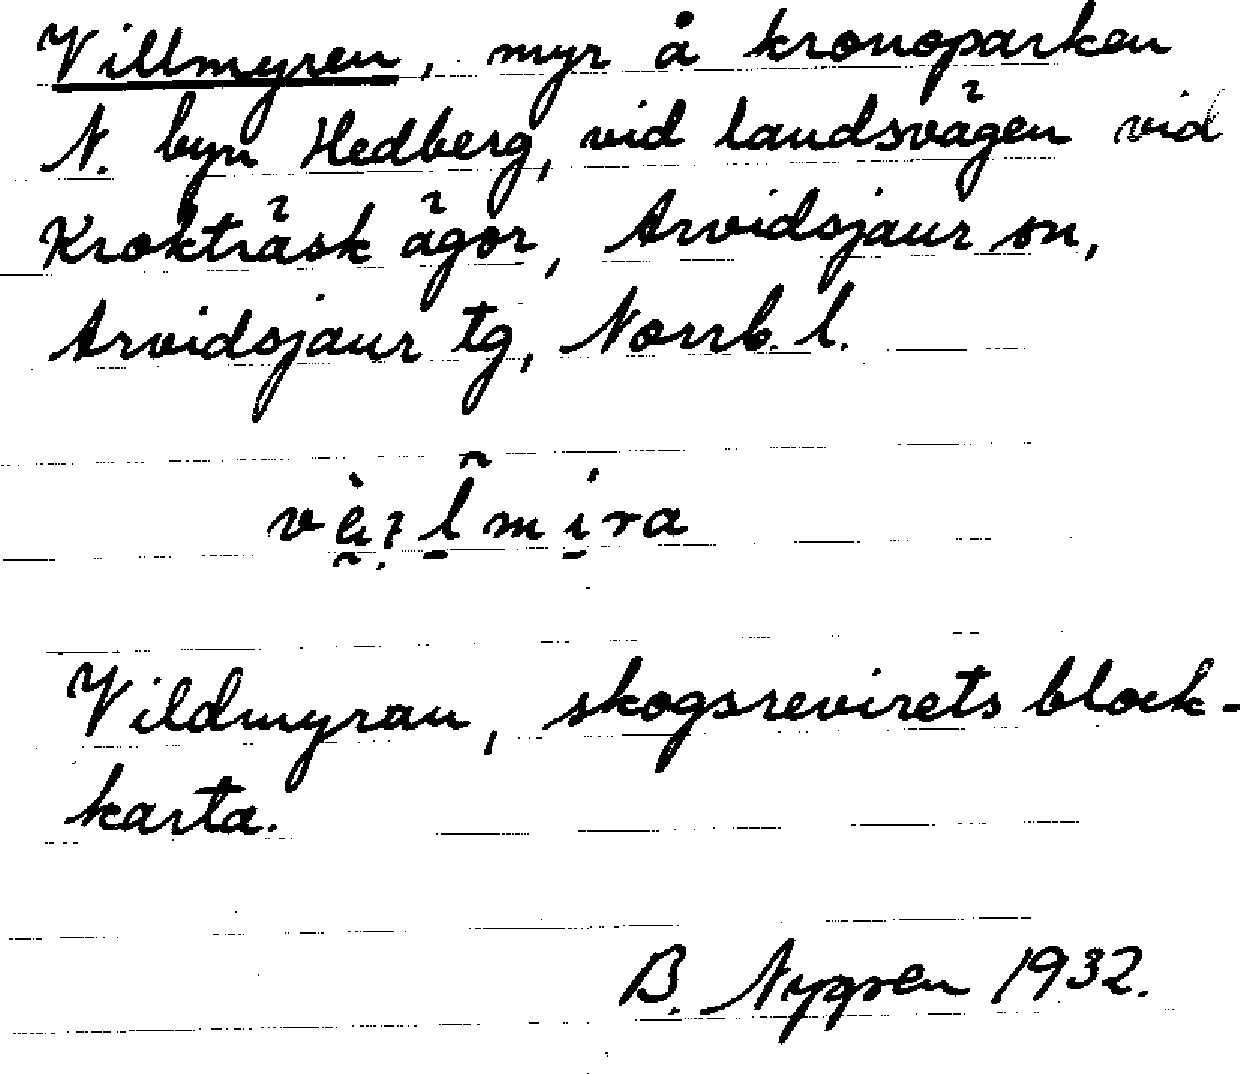 Villmyren, myr å kronoparken
N. byn Hedberg, vid landsvägen vid
Krokträsk ägor, Arvidsjaur sn,
Arvidsjaur tg, Norrb. l.
Vildmyran, skogsrevirets block-
karta.
B. Nygren 1932.